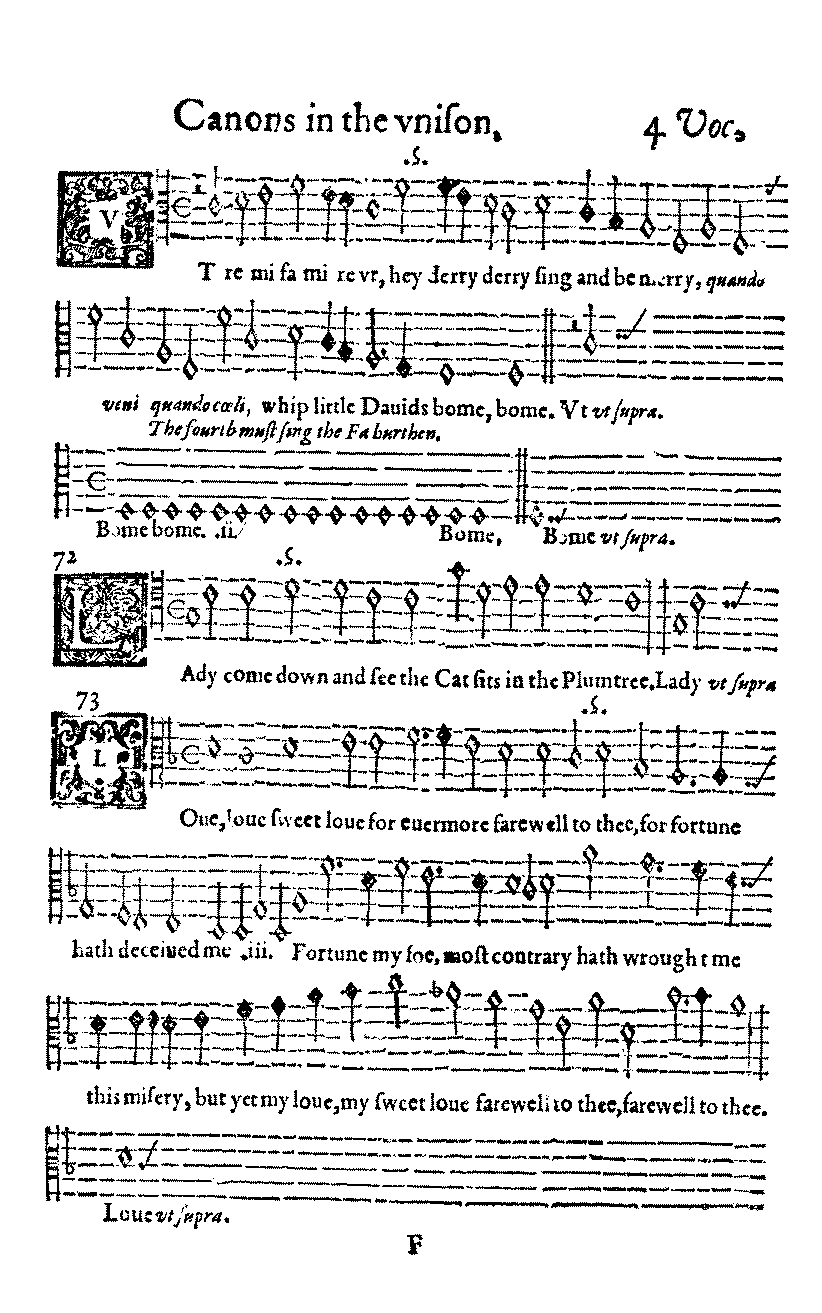 Canons in the vniſon, 4 Voc.
.S.
VT re mi fa mi re vt, hey derry derry ſing and be merry, quando
veni quando cœli, whip little Dauids bome, bome. Vt vt ſupra.
The fourth muſt ſing the Fa burthen.
Bome bome. .ii. Bome, Bome vt ſupra.
72 .S.
LAdy come down and ſee the Cat ſits in the Plumtree. Lady vt ſupra
73 .S.
LOue, loue ſweet loue for euermore farewell to thee, for fortune
hath deceiued me .iii. Fortune my foe, moſt contrary hath wrought me
this miſery, but yet my loue, my ſweet loue farewell to thee, farewell to thee.
Loue vt ſupra.
F